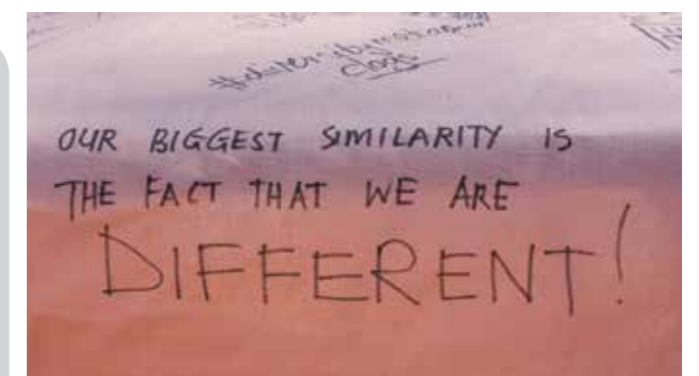 OUR BIGGEST SIMILARITY IS
THE FACT THAT WE ARE
DIFFERENT!